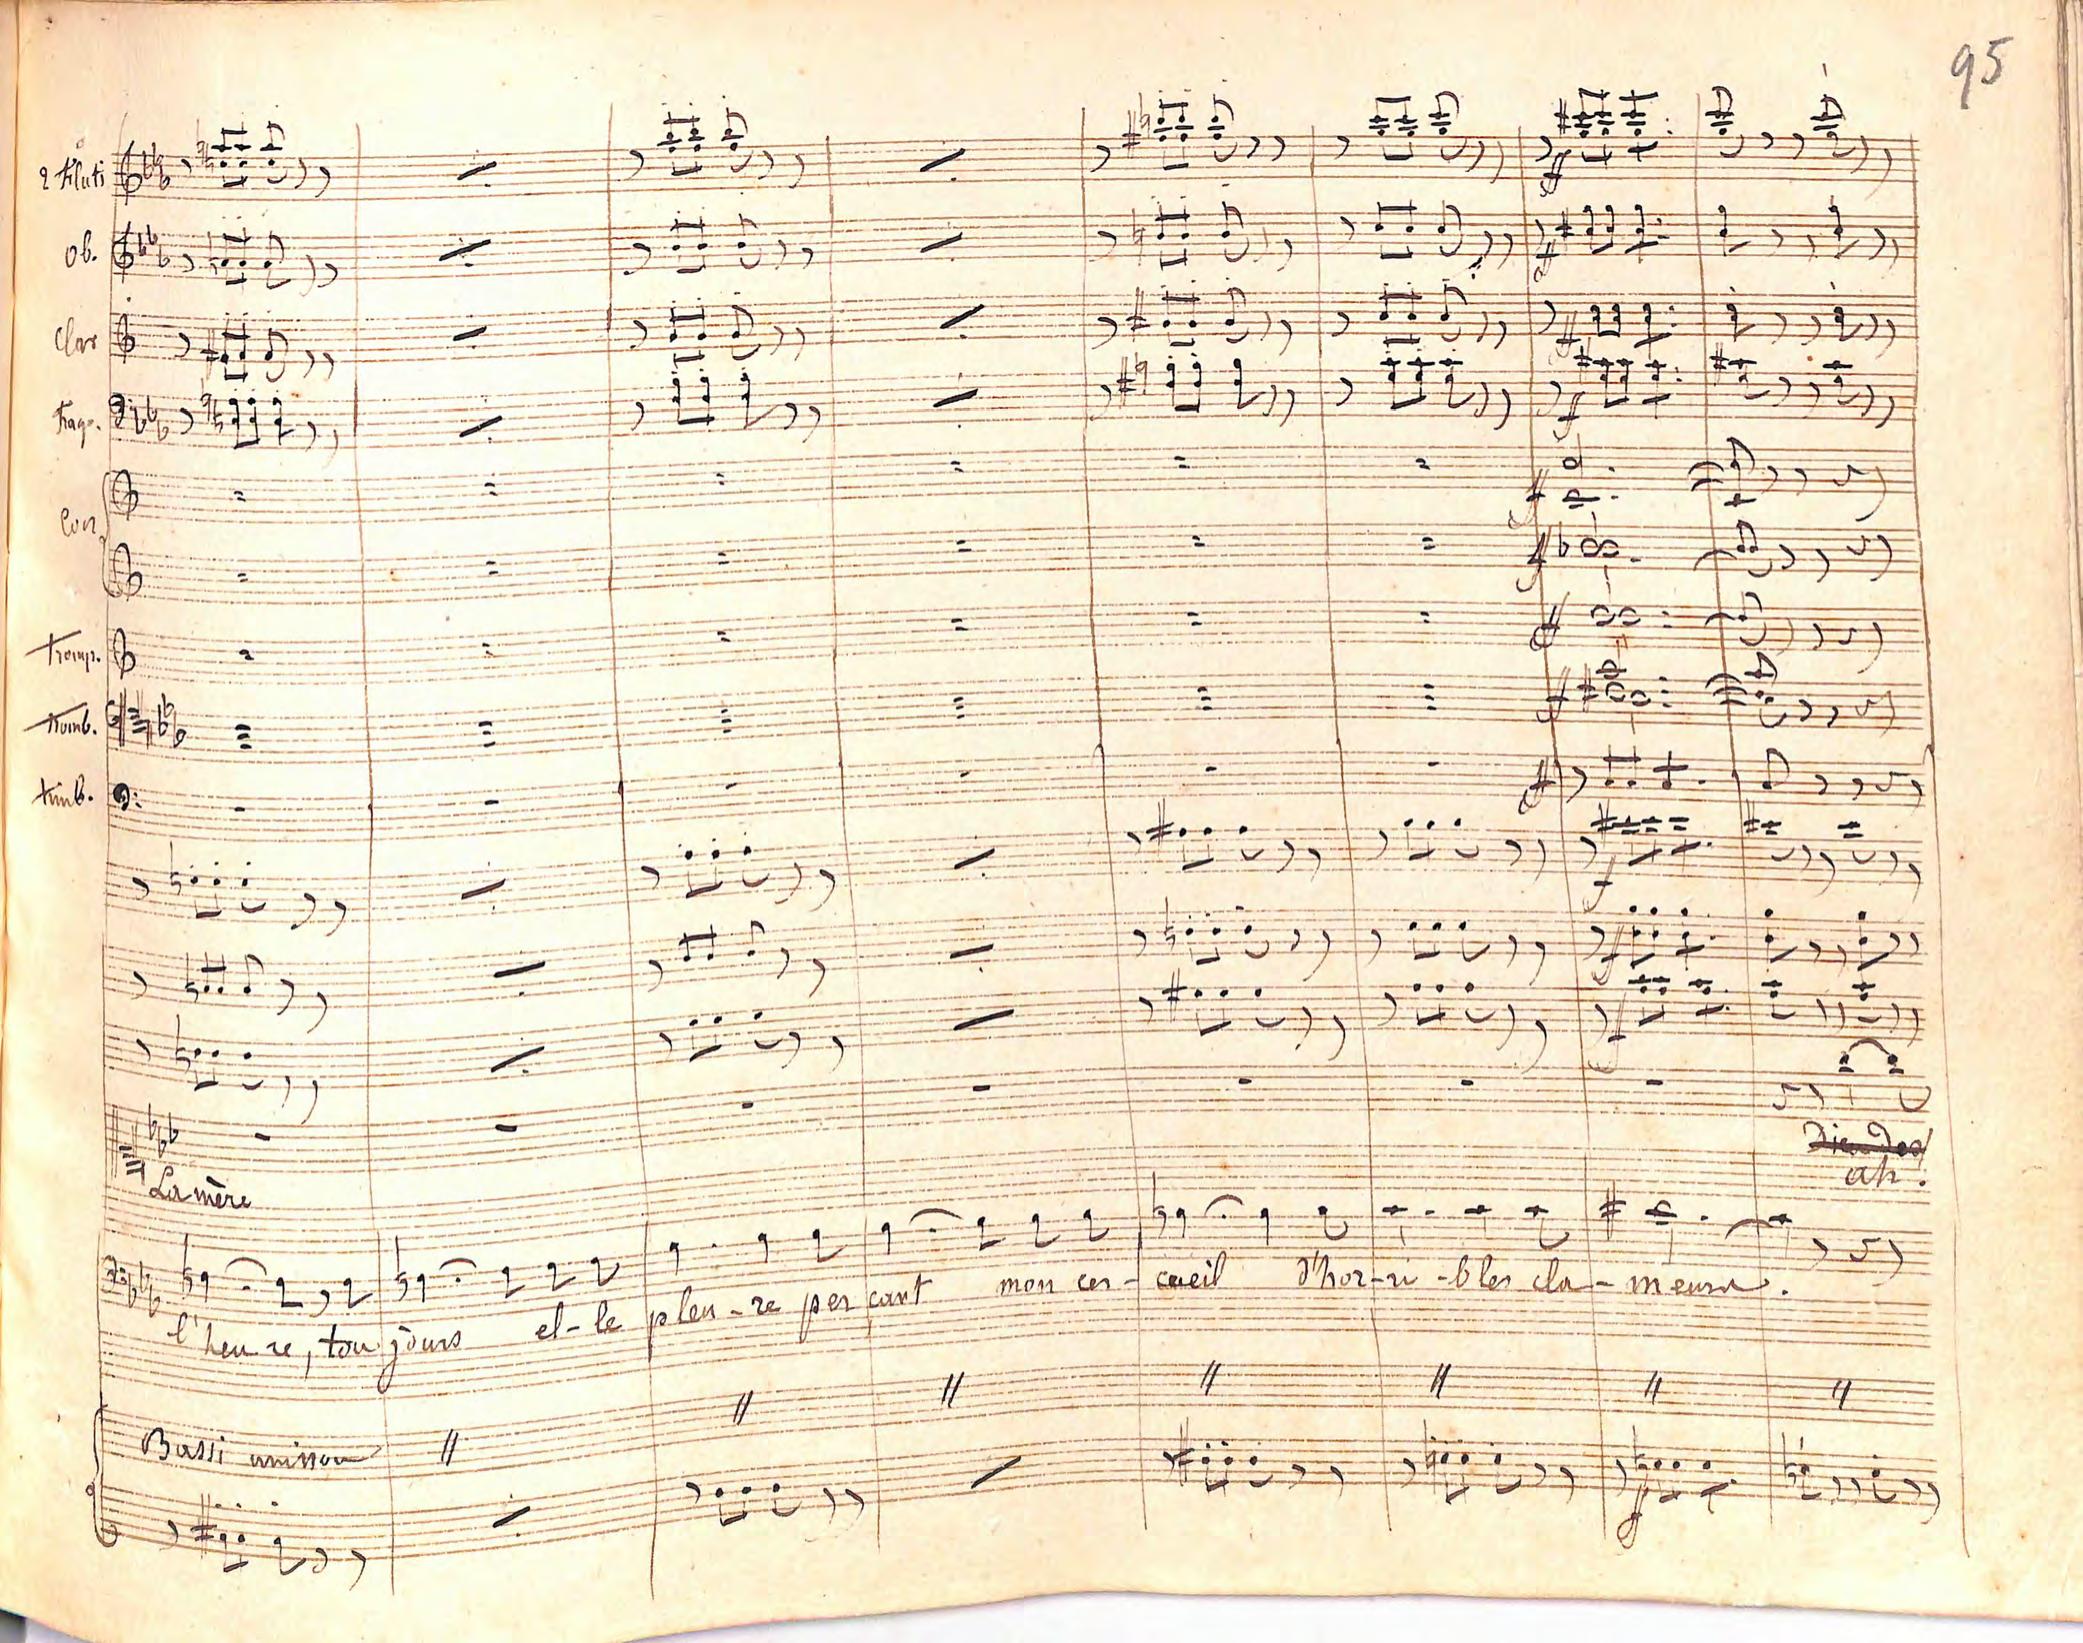 95
2 Fluti
Ob.
Clar
Fago.
Cor
Tromp.
Tromb.
timb.
ff
ff
ff
ff
Dieu des
ah!
La mère
l'heu re, tou jours el-le pleu-re per cant mon cer-cueil d'hor-ri-bles cla-meurs.
Bassi unisson